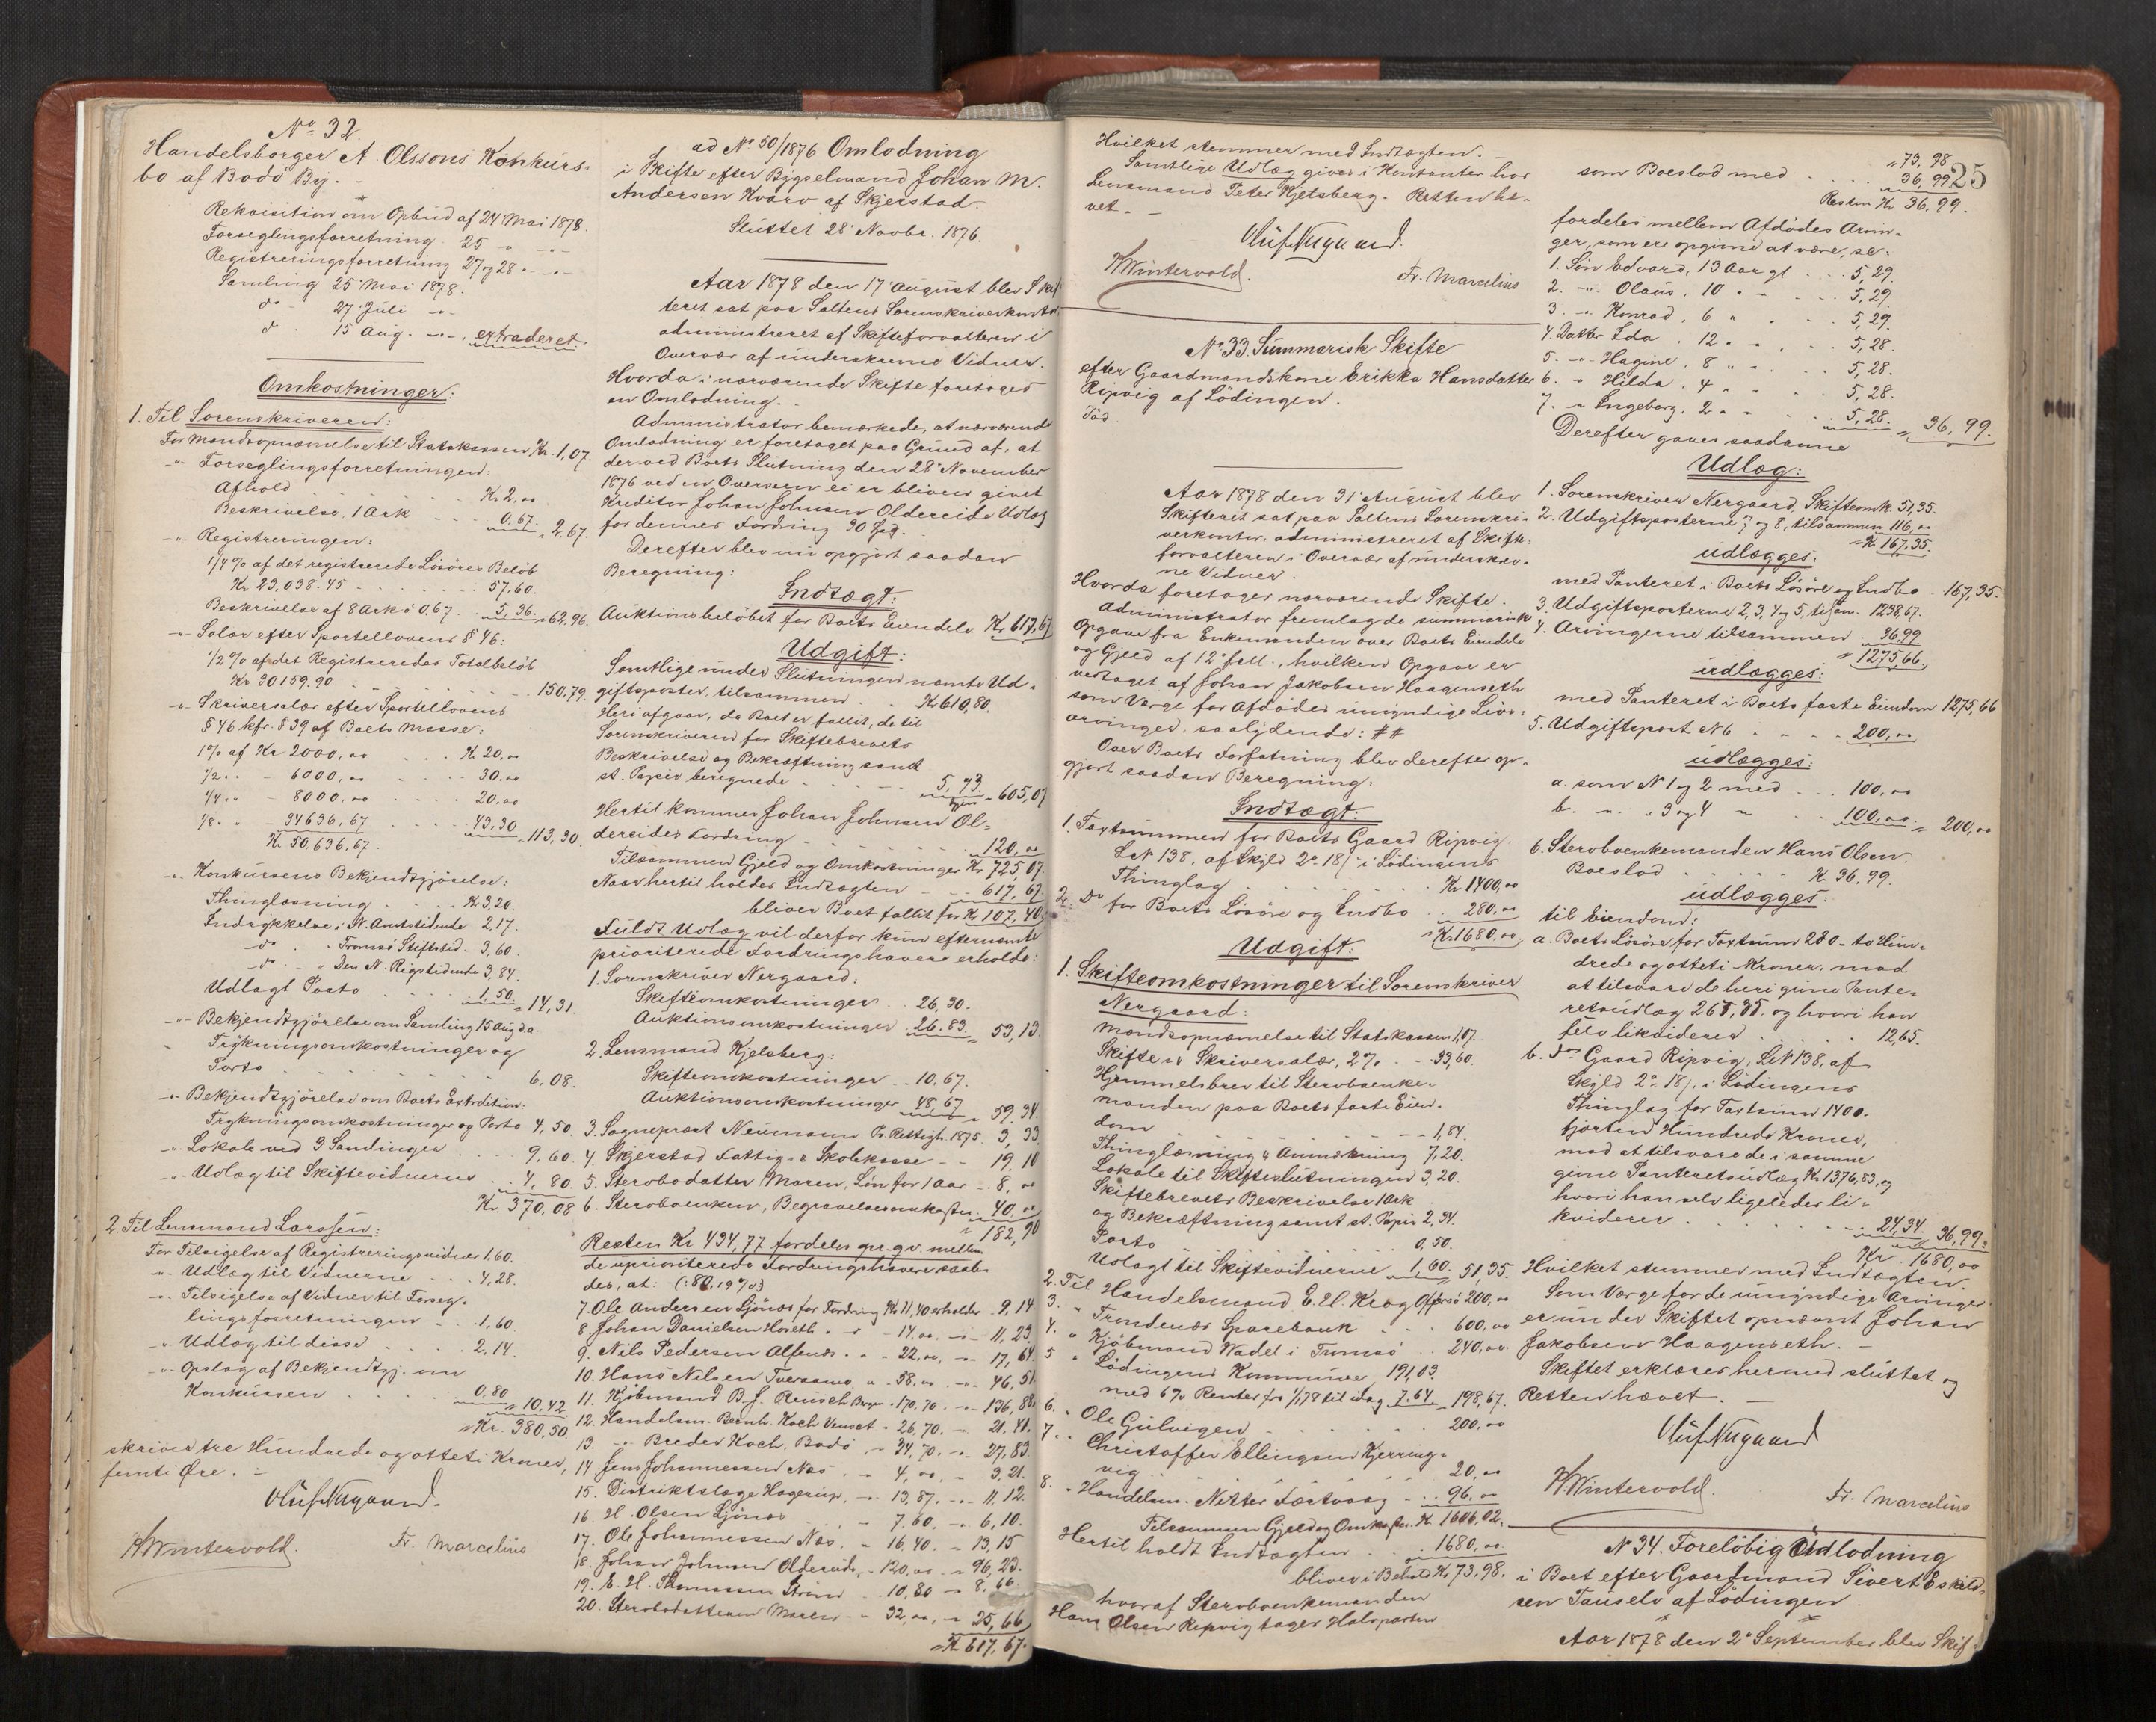 No. 32.
Handelsborger A. Olssons Konkurs-
bo af Bodö By. -
Rekvisition om Opbud af 24 Mai 1878.
Forseglingsforretning 25 " -"-
Registreringsforretning 27 og 28 " -"-
Samling 25' Mai 1878.
do - 27 Juli -"-
do 15 Aug. -"-, extraderet.
Omkostninger:
1. Til Sorenskriveren:
For Mandsopnævnelse til Statskassen Kr. 1,07.
-"- Forseglingsforretningen:
Afhold . . . Kr. 2,00
Beskrivelse, 1 Ark . . 0,67. " 2,67.
-"- Registreringen:
1/4 % af det registrerede Lösöres Belöb
Kr. 23,038.45 . . . 57,60.
Beskrivelse af 8 Ark à 0,67 . . 5,36. " 62,96.
-"- Salær efter Sportellovens § 46:
1/2 % af det Registreredes Totalbelöb
Kr 30159.90 . . . 150,79.
-"- Skriversalær efter Sportellovens
§ 46 kfr. § 39 af Boets Masse:
1 % af Kr 2000,00 . . . Kr. 20,00
1/2 " - 6000,00 . . . 30.00
1/4 " - 8000,00 . . . 20.00
1/8 " - 34636,67 . . . 43,30 " 113,30.
Kr. 50,636,67.
-"- Konkursens Bekjendtgjörelse:
Thinglæsning . . . Kr 3,20.
Indrykkelse i N. Amtstidende 2,17.
-do- . " Tromsö Stiftstid. 3,60.
-do- . " Den N. Rigstidende 3,84.
Udlagt Porto . . . 1,50. " 14,31.
-"- Bekjendtgjörelse om Samling 15 Aug. d.a:
Trykningsomkostninger og
Porto . . . 6,08.
-"- Bekjendtgjörelse om Boets Extradition:
Trykningsomkostninger og Porto 4,50.
-"- Lokale ved 3 Samlinger . . 9.60.
-"- Udlæg til Skiftevidnerne . . 4,80.
Kr. 370,08
2. Til Lensmand Larssen:
For Tilsigelse af Registreringsvidner 1.60.
-"- Udlæg til Vidnerne . . . 4,28.
-"- Tilsigelse af Vidner til Forseg-
lingsforretningen . . 1,60
-"- Udlæg til disse . . . 2,14.
-"- Opslag af Bekjendtgj. om
Konkursen . . . 0,80 " 10,42
Kr. 380,50.
skriver tre Hundrede og otteti Kroner,
femti Øre. -
Oluf Nergaard.
H. Wintervold. Fr. Marcelius
ad No 50/1876 Omlodning
i Skifte efter Bygselmand Johan M.
Andersen Kvarv af Skjerstad.
Sluttet 28' Novbr. 1876.
Aar 1878 den 17' August blev Skif-
teret sat paa Saltens Sorenskriverkontor
administreret af Skifteforvalteren i
Overvær af underskrevne Vidner.
Hvorda i nærværende Skifte foretoges
en Omlodning.
Administrator bemærkede, at nærværende
Omlodning er foretaget paa Grund af, at
der ved Boets Slutning den 28' November
1876 ved en Overseen ei er bleven givet
Kreditor Johan Johnsen Oldereide Udlæg
for dennes Fordring 30 Spd.
Derefter blev nu opgjort saadan
Beregning:
Indtægt:
Auktionsbelöbet for Boets Eiendele Kr 617,67
Udgift:
Samtlige under Slutningen nævnte Ud-
giftsposter, tilsammen . Kr 610,80.
Heri afgaar, da Boet er fallit, de til
Sorenskriveren for Skiftebrevets
Beskrivelse og Bekræftning samt
st. Papir beregnede . . . 5,73. - 605,07
Hertil kommer Johan Johnsen Ol-
dereides Fordring . . . 120,00
Tilsammen Gjeld og Omkostninger Kr. 725,07.
Naar hertil holdes Indtægten . . 617,67.
bliver Boet fallit for Kr. 107,40.
Fuldt Udlæg vil derfor kun efternævnte
prioriterede Fordringshavere erholde:
1. Sorenskriver Nergaard:
Skifteomkostninger . . 26,30.
Auktionsomkostninger . 26.83. " 53,13.
2. Lensmand Kjelsberg:
Skifteomkostninger . . 10,67.
Auktionsomkostninger 48,67 " 59.34.
3. Sognepræst Neumann Pr. Rettigh. 1875. 3,33
4. Skjerstad Fattig- & Skolekasse - - 19,10
5. Sterbodatter Maren, Lön for 1 Aar . 8,00
6. Sterboenken, Begravelsesomkostn. . 40,00
" 182,90
Resten Kr 434,77 fordeles pr. q.v. mellem
de uprioriterede Fordringshavere saale-
des, at: (: 80,19 % :)
7. Ole Andersen Ljönæs for Fordring Kr. 11,40 erholder . 9.14
8. Johan Danielsen Horeth . " - 14,00 . -"- 11,23.
9. Nils Pedersen Alfenæs . " . 22,00, -"- 17,64.
10. Hans Nilsen Tveraamo " . 58,00 . -"- 46,51
11. Kjöbmand B. J. Reusch Bergen . 170,70. -"- 136,88.
12. Handelsm. Bernh. Koch Venset - 26,70. - 21,41.
13. -"- Breder Koch, Bodö " 34,70. -"- 27,83.
14 Jens Johannessen Næs . " 4,00, - 3,21.
15. Distriktslæge Hagerup, " 13,87. -"- 11,12.
16. H. Olsen Ljönæs . . - 7.60. -"- 6,10.
17. Ole Johannessen Næs. " 16,40. - 13,15
18. Johan Johnsen Oldereide, - 120,00 - 96,23.
19. E. H. Thomassen Strömd . 10,80 - 8,66
20. Sterbodatteren Maren - 32,00, - 25,66
Kr 617,67.
25
Hvilket stemmer med Indtægten. -
Samtlige Udlæg gives i Kontanter hos
Lensmand Peter Kjelsberg. Retten hæ-
vet. -
Oluf Nergaard.
H. Wintervold. Fr. Marcelius
No 33. Summarisk Skifte
efter Gaardmandskone Erikka Hansdatter
Ripvig af Lödingen.
Död
Aar 1878 den 31' August blev
Skifteret sat paa Saltens Sorenskri-
verkontor, administreret af Skifte-
forvalteren i Overvær af underskrev-
ne Vidner.
Hvorda foretoges nærværende Skifte.
Administrator fremlagde summarisk
Opgave fra Enkemanden over Boets Eiendele
og Gjeld af 12' ., hvilken Opgave er
vedtaget af Johan Jakobsen Haagenseth
som Værge for Afdödes umyndige Livs-
arvinger, saalydende: ##
Over Boets Forfatning blev derefter op-
gjort saadan Beregning:
Indtægt:
1. Taxtsummen for Boets Gaard Ripvig
L.N. 138, af Skyld 2 18 i Lödingens
Thinglag . . . Kr 1400,00
2. Do for Boets Lösöre og Indbo . . 280,00
Kr. 1680,00
Udgift:
1. Skifteomkostninger til Sorenskriver
Nergaard:
Mandsopnævnelse til Statskassen 1,07.
Skifte- & Skriversalær, 2 % . - 33,60.
Hjemmelsbrev til Sterboenke-
manden paa Boets faste Eien-
dom . . . 1,84.
Thinglæsning & Anmærkning 7,20.
Lokale til Skifteslutningen 3,20.
Skiftebrevets Beskrivelse 1 Ark
og Bekræftning samt st. Papir 2,34.
Porto . . . 0,50.
Udlagt til Skiftevidnerne 1,60. " 51,35.
2. Til Handelsmand E. El. Krog Offersö 200,00
3. " Trondenæs Sparebank . . 600,00
4. " Kjöbmand Wadel i Tromsö . . 240,00
5 " Lödingens Kommune 191,03
med 6 % Renter fra 1/1 78 til idag 7.64 198,67.
6. " Ole Gulvigen . . . 200,00
7. " Christoffer Ellingsen Kjerring-
vig . . . 20,00
8. " Handelsm. Nitter Tortvaag . . 96,00
Tilsammen Gjeld og Omkostn. Kr. 1606,02.
Hertil holdt Indtægten . . 1680,00.
bliver i Behold Kr 73,98.
hvoraf Sterboenkemanden
Hans Olsen Ripvig tager Halvparten
" 73,98
som Boeslod med . . . 36,99.
Resten Kr 36,99.
fordeles mellem Afdödes Arvin-
ger, som ere opgivne at være, se-
1. Sön Edvard, 13 Aar gl . . 5,29.
2. -"- Olaus, 10 " - . . 5,29
3. -"- Konrad, 6 " " . . 5,29.
4. Datter Ida . 12 " " . . 5,28.
5. -"- Hagine, 8 " " . . 5,28.
6. " Hilda, 4 " " . . 5,28.
7. " Ingeborg. 2 " " . . 5,28. " 36,99.
Derefter gaves saadanne
Udlæg:
1. Sorenskriver Nergaard, Skifteomk. 51,35.
2. Udgiftsposterne 7 og 8, tilsammen 116,00
Kr. 167,35.
udlægges:
med Panteret i Boets Lösöre og Indbo . 167,35.
3. Udgiftsposterne 2, 3, 4 og 5, tilsam. 1238,67.
4. Arvingerne tilsammen . 36,99
" 1275,66.
udlægges:
med Panteret i Boets faste Eiendom 1275,66
5. Udgiftspost N 6 . . . 200,00
udlægges:
a. som N 1 og 2 med . . . 100,00
b. -"- " 3 og 4 " . . 100,00. " 200,00
6. Sterboenkemanden Hans Olsen.
Boeslod . . . Kr. 36,99.
udlægges:
til Eiendom:
a. Boets Lösöre for Taxtsum 280 - to Hun-
drede og otteti - Kroner, mod
at tilsvare de heri givne Pante-
retsudlæg 267,35. og hvori han
selv likviderer . . . 12,65.
b. Dos Gaard Ripvig, L.N. 138, af
Skyld 2 18, i Lödingens
Thinglag for Taxtsum 1400.
fjorten Hundrede Kroner,
mod at tilsvare de i samme
givne Panteretsudlæg Kr. 1375,66, og
hvori han selv ligeledes li-
kviderer . . . 24,34 " 36,99.
Kr. 1680,00
Hvilket stemmer med Indtægten.
Som Værge for de umyndige Arvinger
er under Skiftet opnævnt Johan
Jakobsen Haagenseth. -
Skiftet erklæres hermed sluttet og
Retten hævet. -
Oluf Nergaard
H. Wintervold. Fr. Marcelius
N 34. Foreløbig Udlodning
i Boet efter Gaardmand Sivert Eskild-
sen Tauselv af Lödingen.
Aar 1878 den 2' September blev Skif-